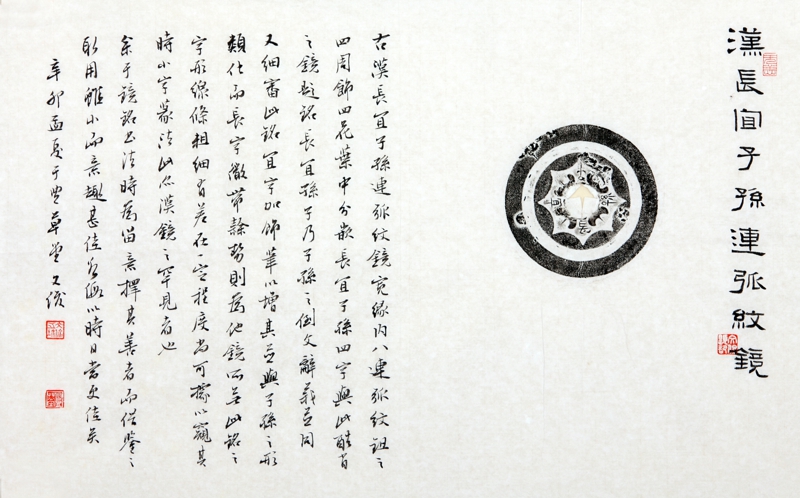 漢長宜子孫連弧紋鏡
右漢長宜子孫連弧紋鏡寬緣内八連弧紋鈕之
四周飾四花葉中分嵌長宜子孫四字與此酷肖
之鏡題銘長宜孫子乃子孫之倒文辭義並同
又細審此銘宜字加飾筆以增其立與子孫之形
類化而長字微帶隸勢則為他鏡所無此銘之
字形線條粗細有差在一定程度尚可據以窺其
時小字篆法此亦漢鏡之罕見者也
余于鏡銘書法時為留意擇其善者而借鑒之
取用雖小而意趣甚佳若假以時日當更佳矣
辛卯孟夏于草堂